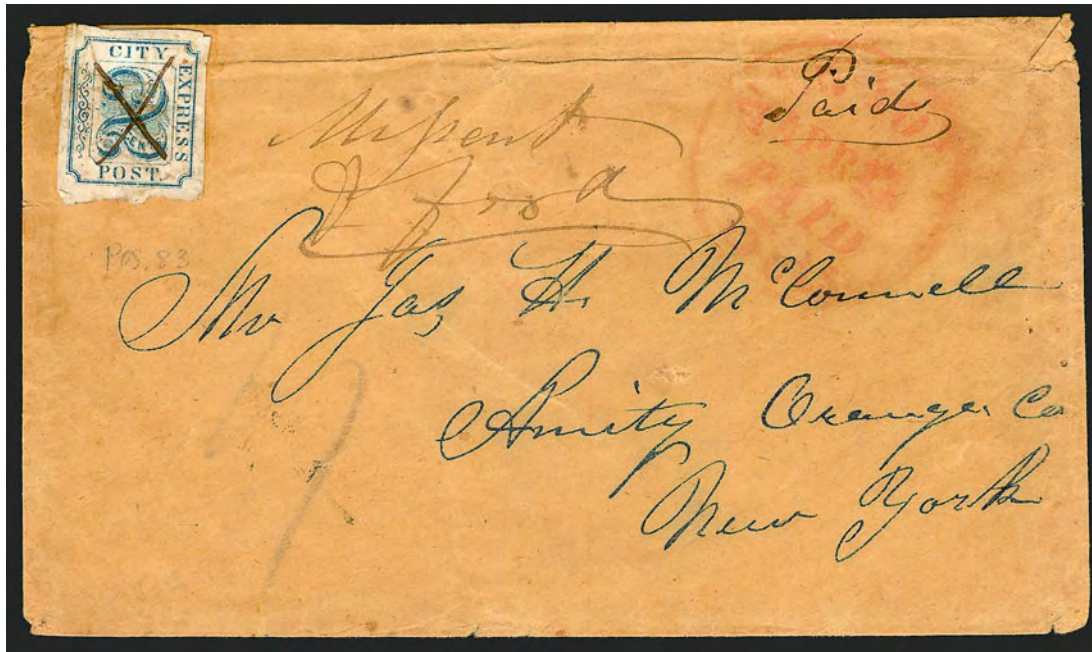 CITY
EXPRESS
POST
2
CENTS
Paid
Missent
&
Ford
APR
PAID
Pos. 83
Mr Jas H. McConnell
Amity Orange Co
New York